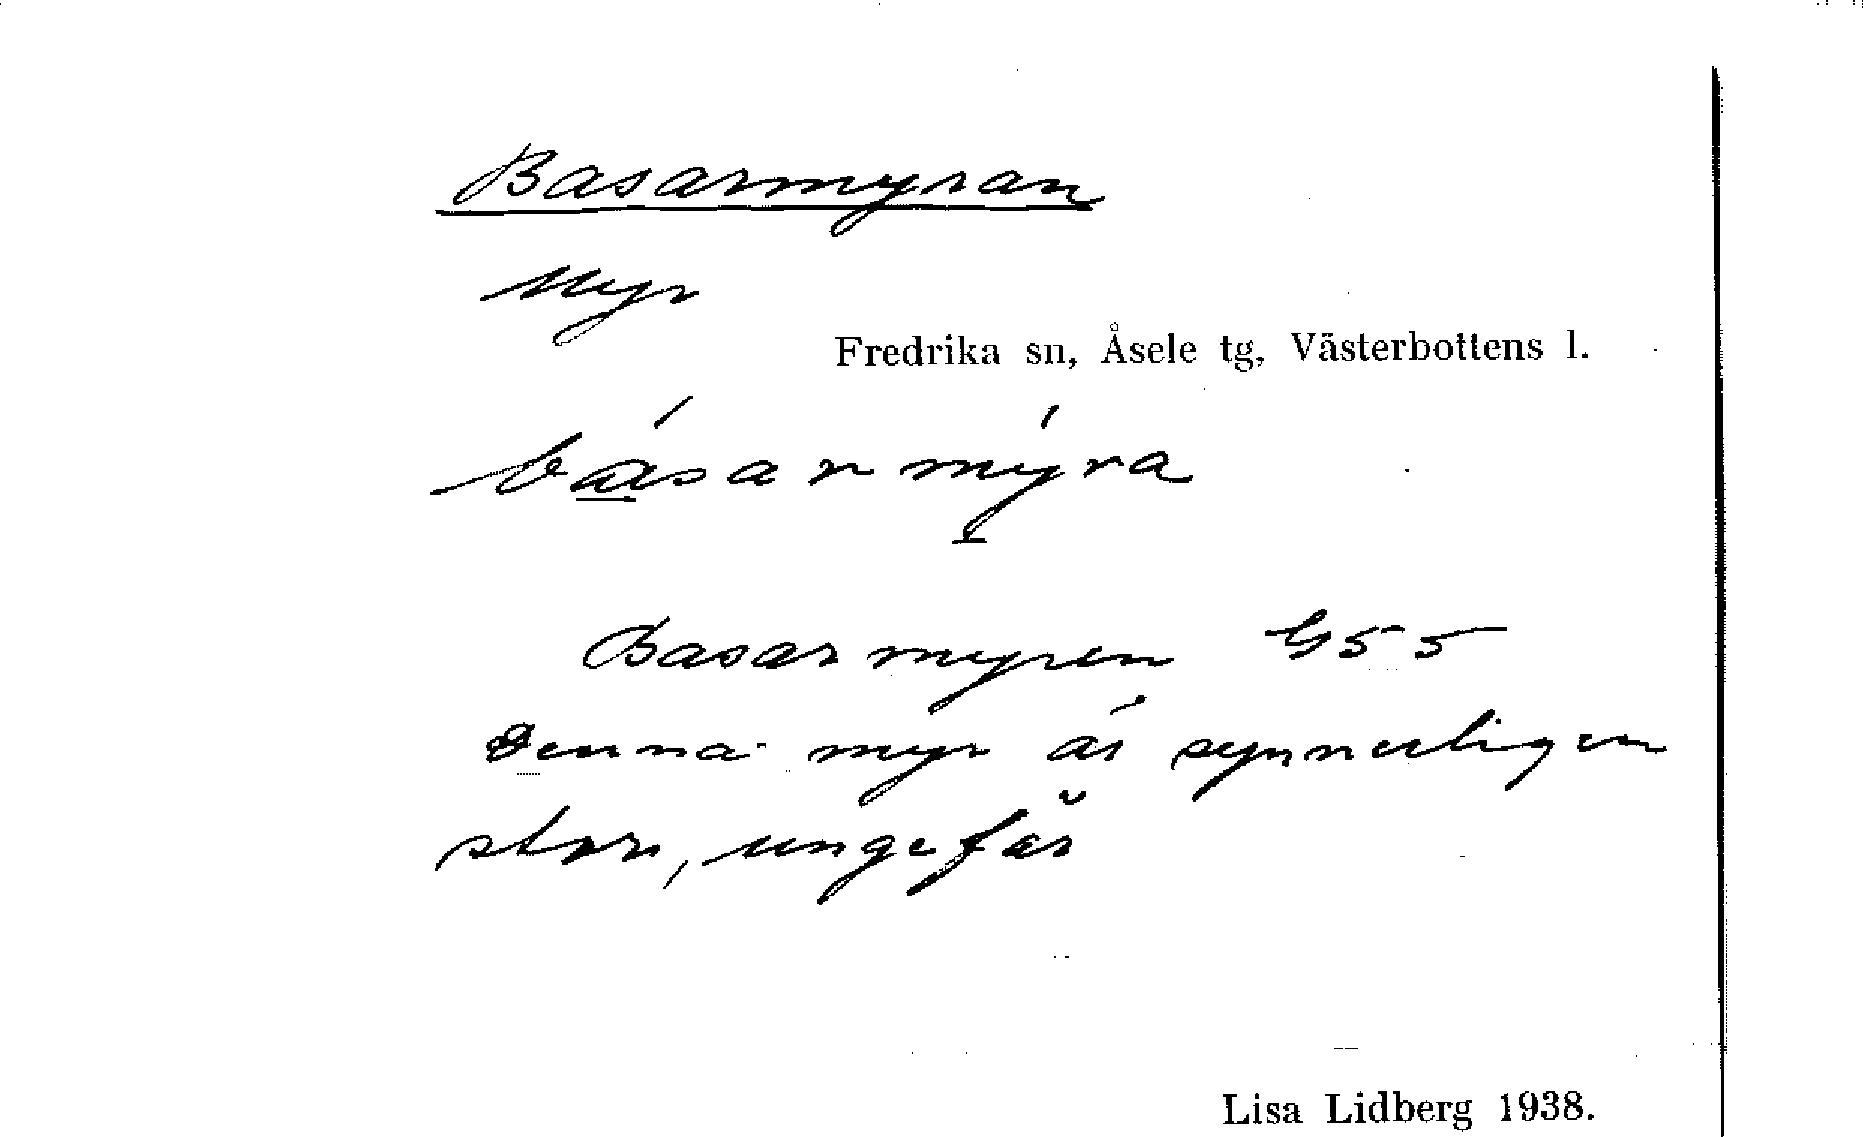 Basarmyran
Myr
Fredrika sn, Åsele tg, Västerbottens l.
básarmýra
Basarmyren G55
Denna myr är synnerligen
stor, ungefär
Lisa Lidberg 1938.